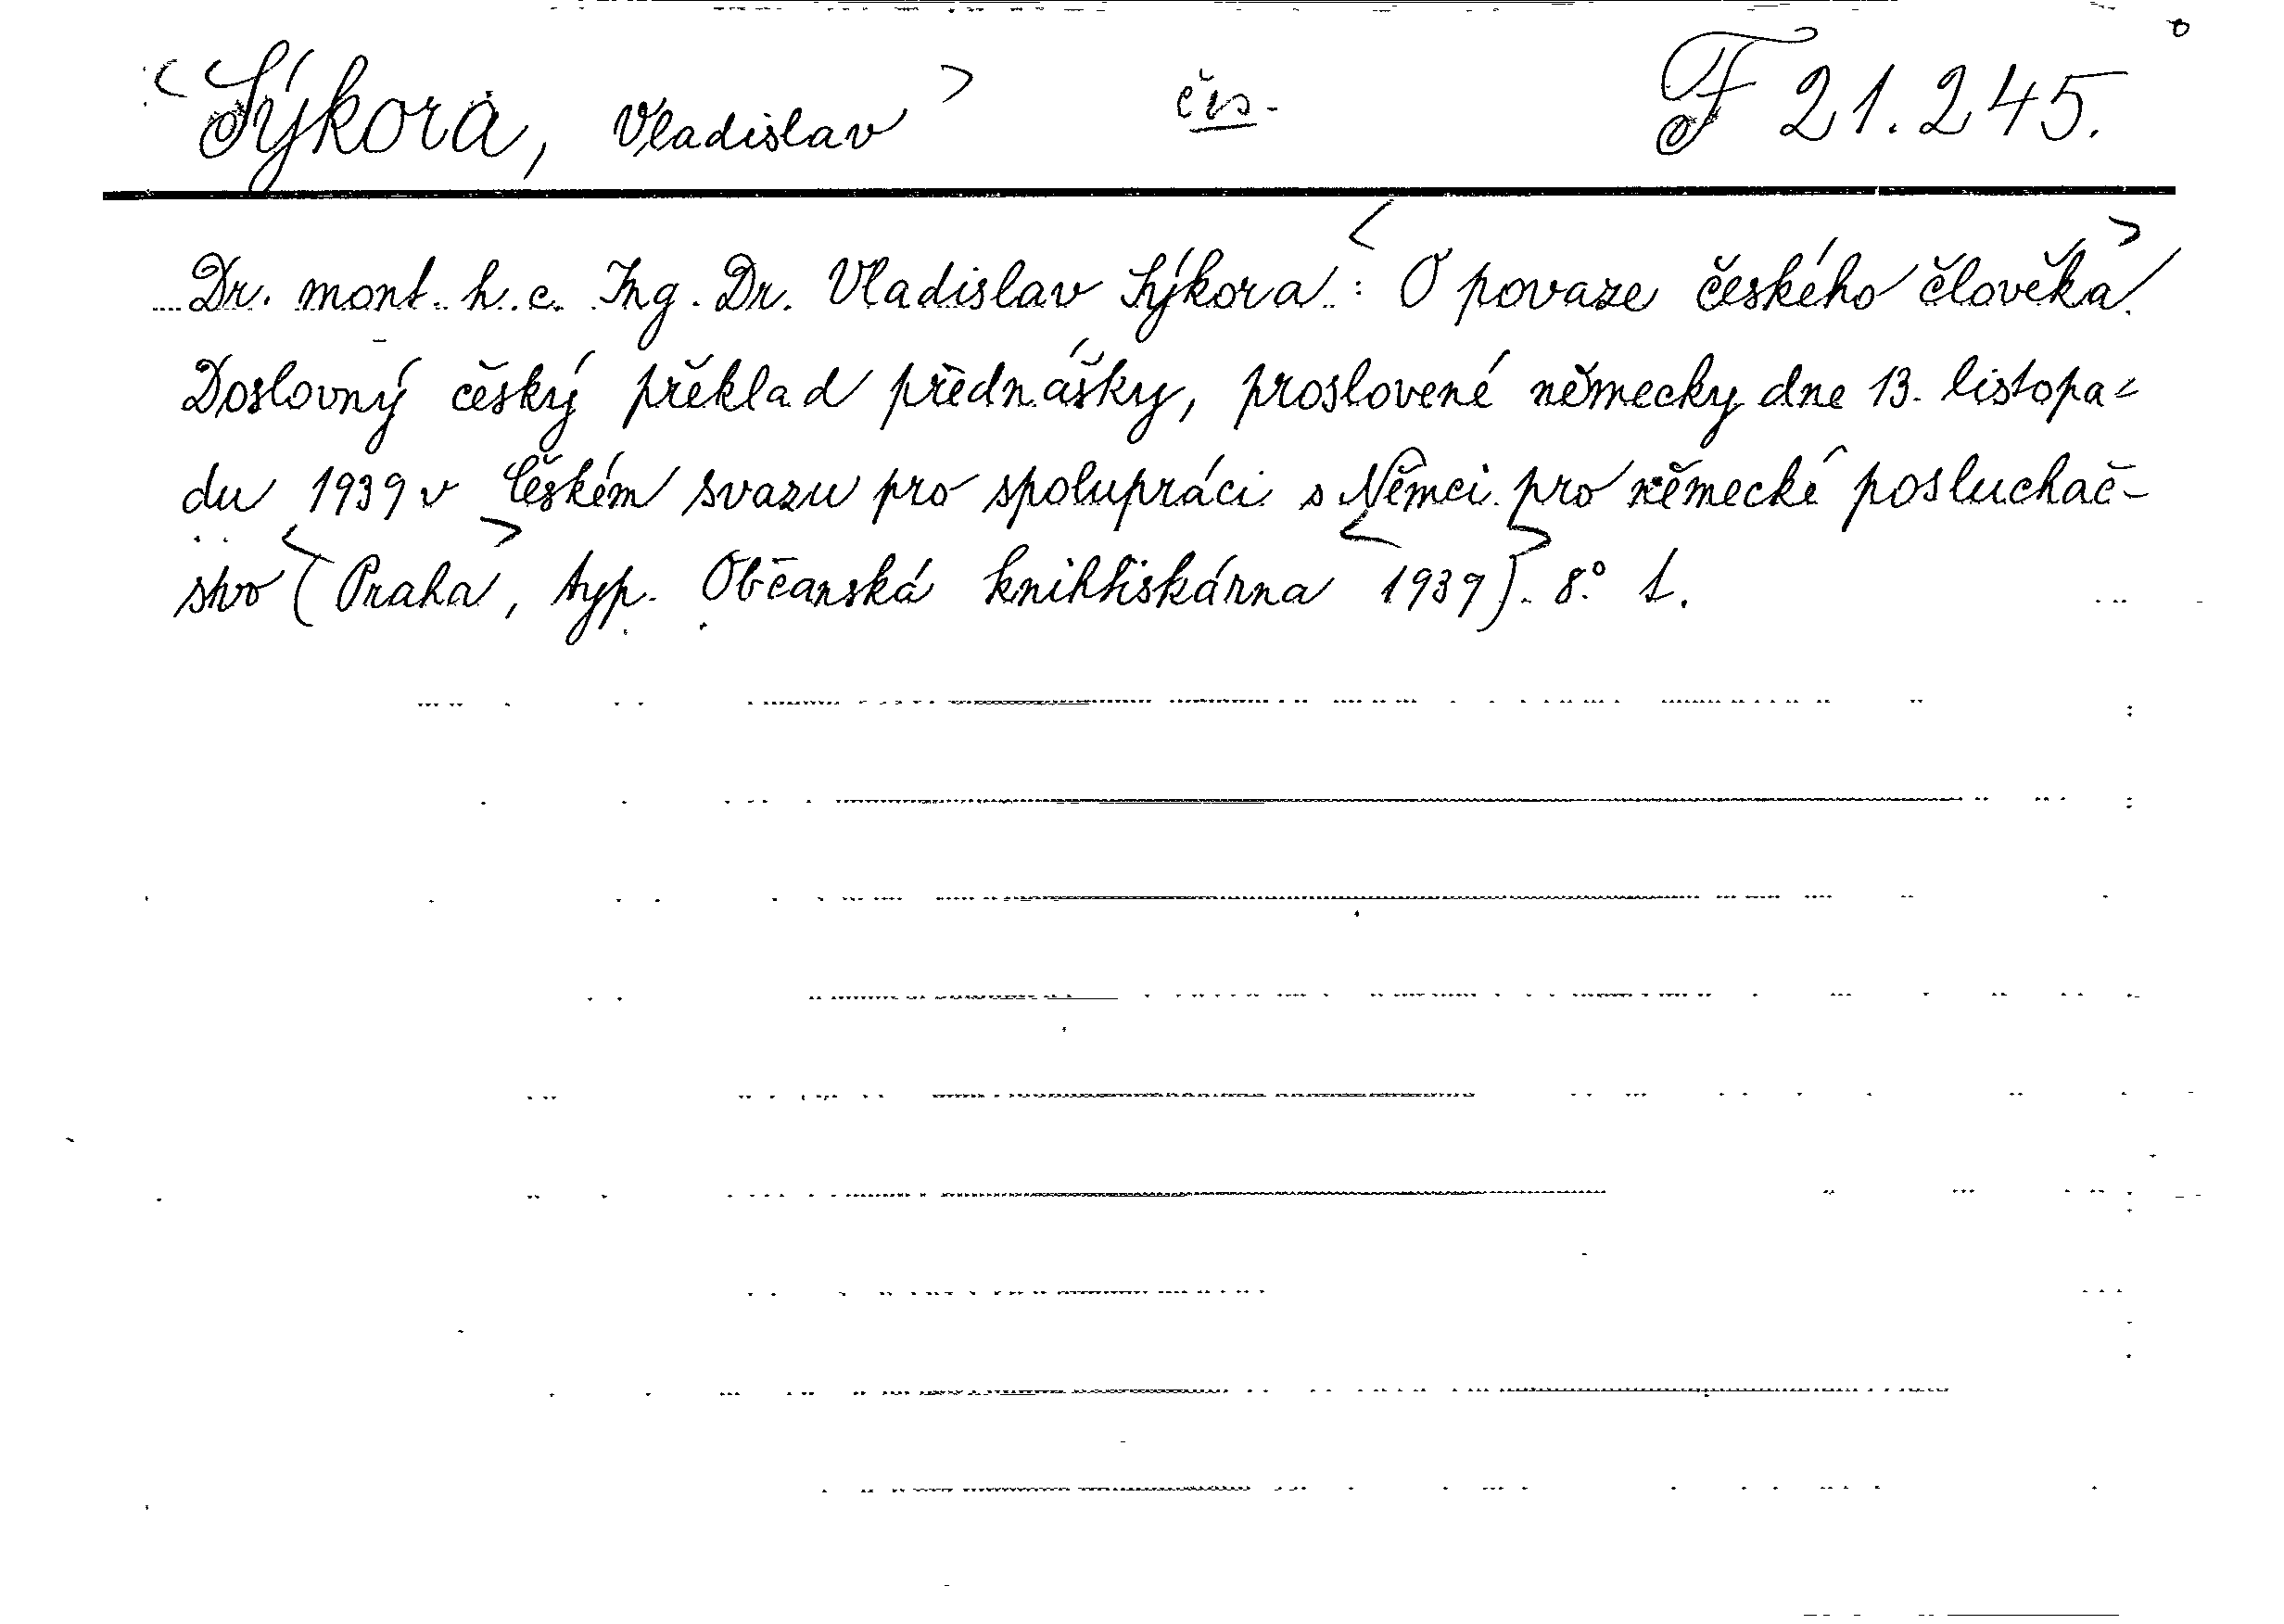 <Sýkora, Vladislav> čís. F 21.245.
Dr. mont. h. c. Ing. Dr. Vladislav Sýkora: <O povaze českého člověka>.
Doslovný český překlad přednášky, proslovené německy dne 13. listopa=
du 1939 v Českém svazu pro spolupráci s Němci pro německé posluchač-
stvo <(Praha>, typ. Občanská knihtiskárna <1939>). 8° 1.